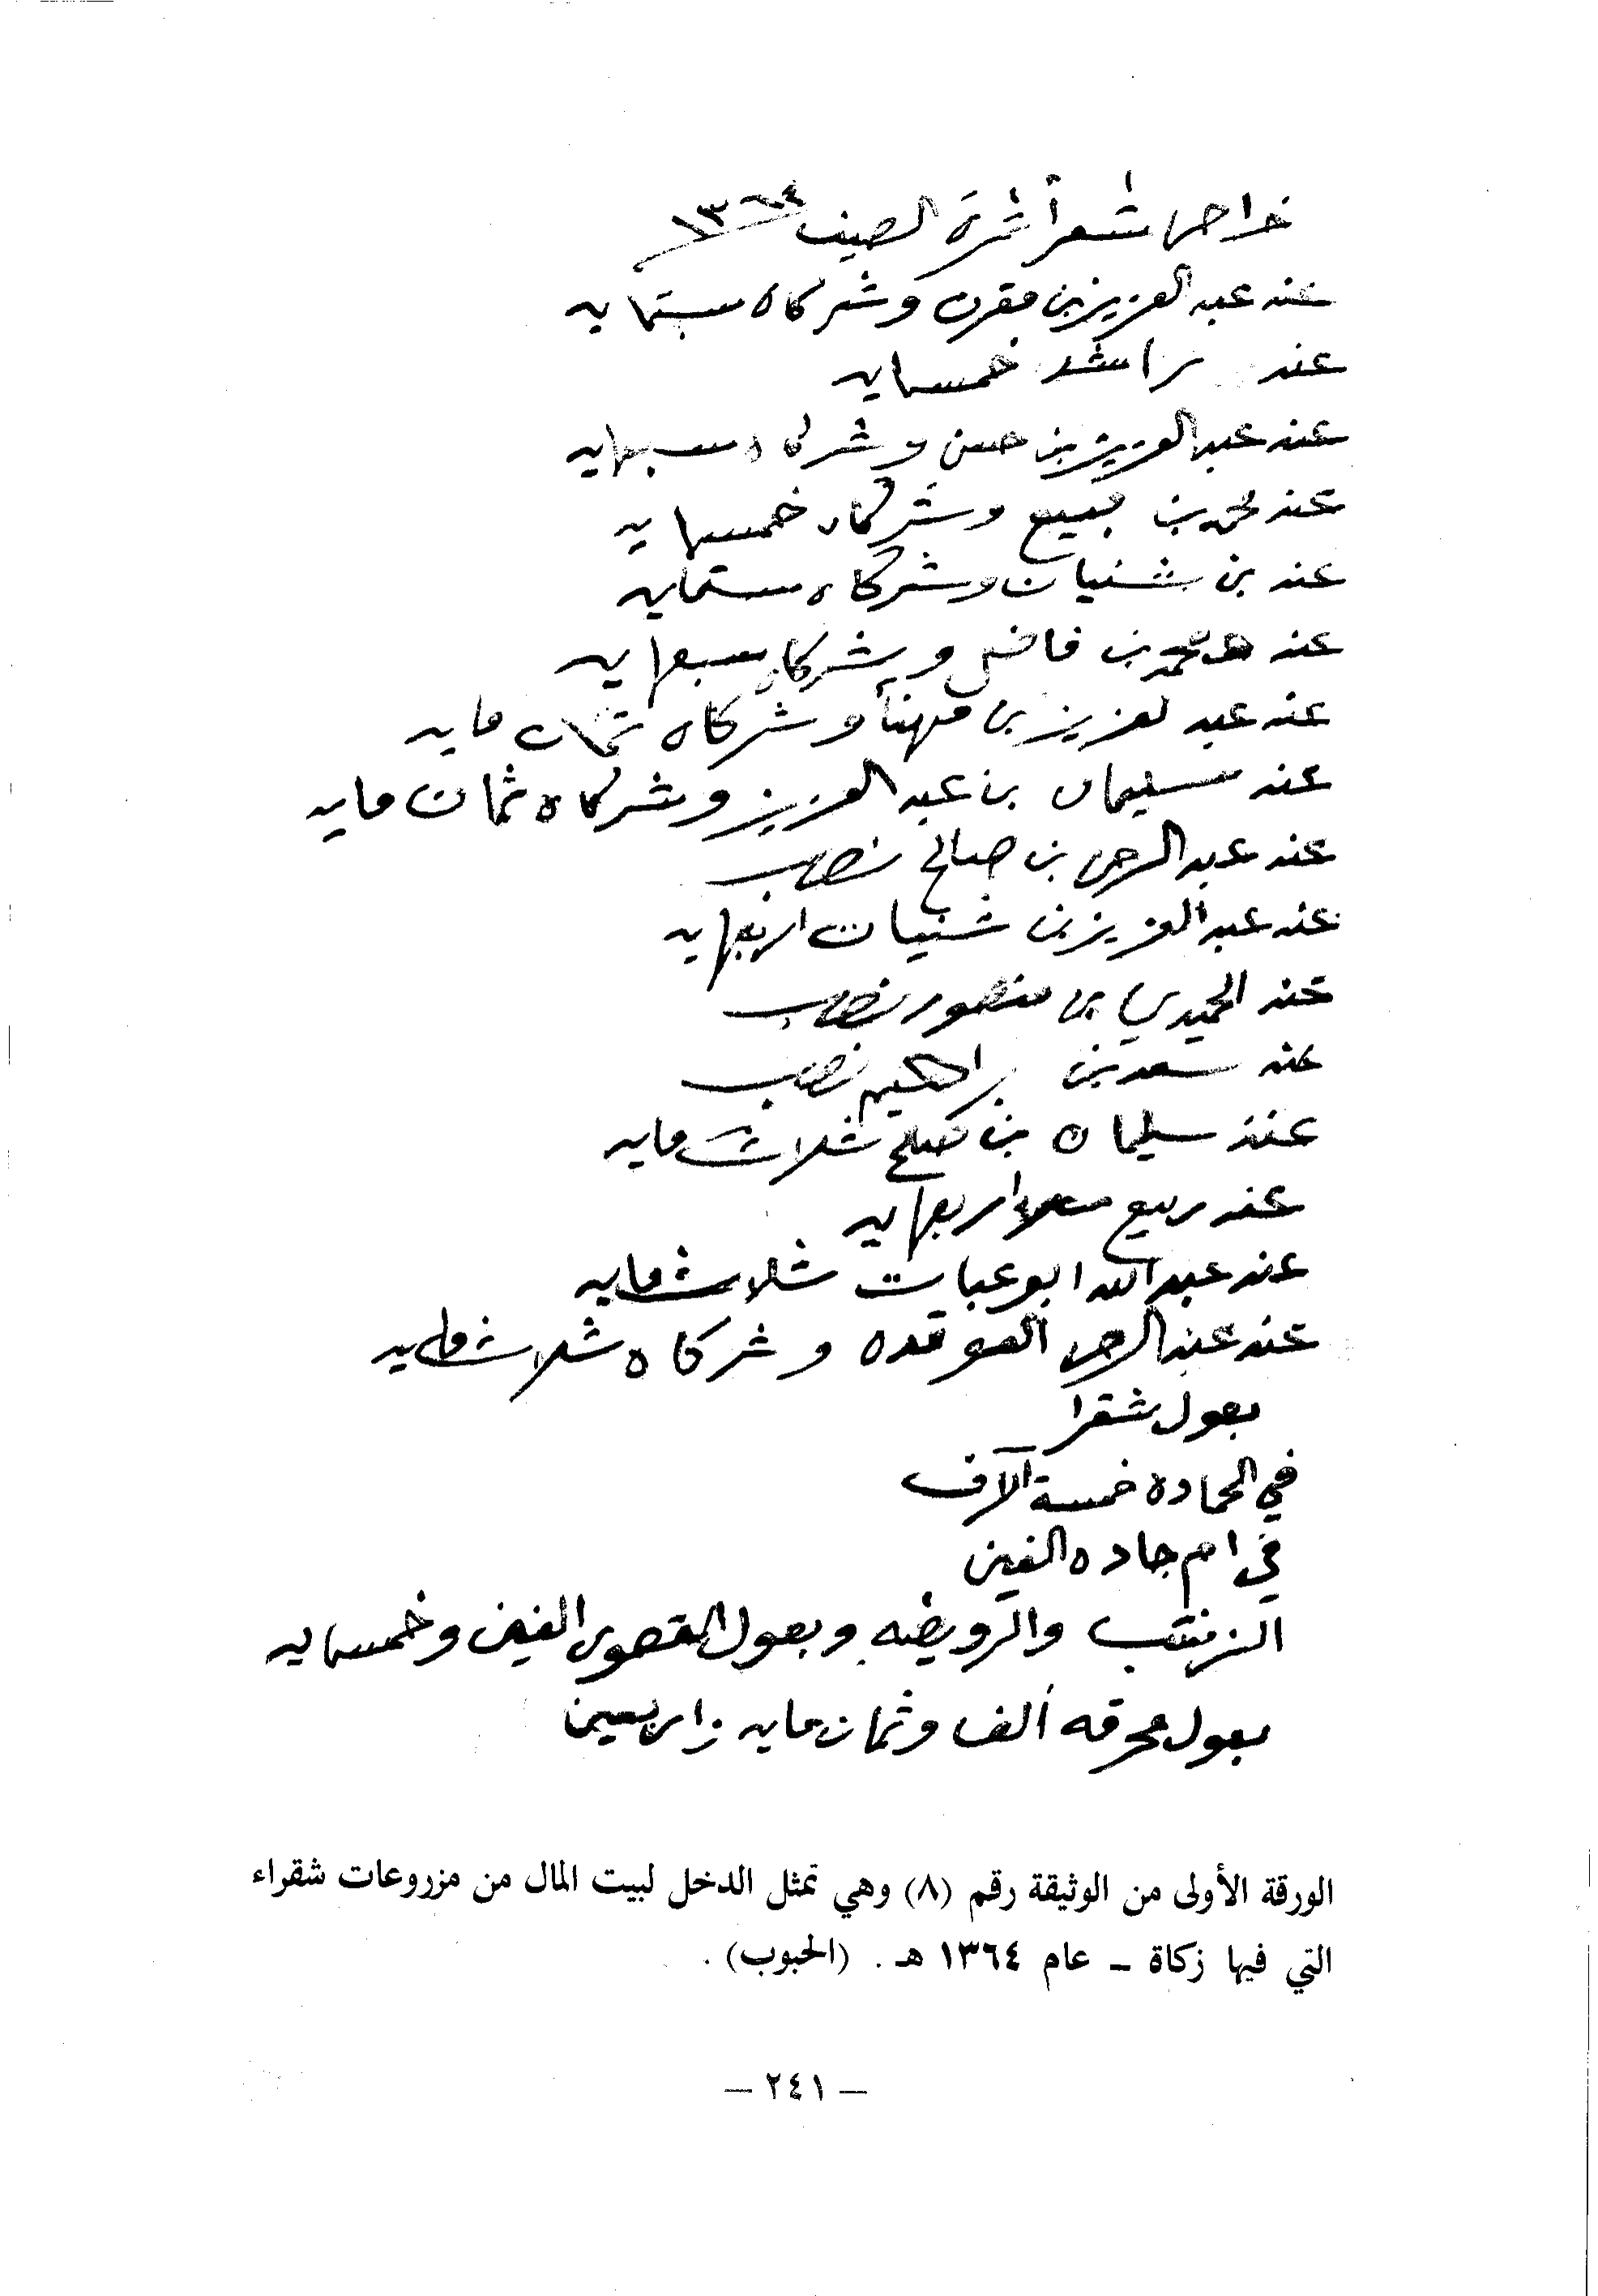 خراص شقرا ثمرة الصيف ١٣٦٤
عند عبد العزيز بن مقرن وشركاه ستمايه
عند راشد خمسمايه
عند عبد العزيز بن حسن وشركاه سبعمايه
عند محمد بن وشركاه خمسمايه
عند بن شنيان وشركاه ستمايه
عند محمد بن وشركاه سبعمايه
عند عبد لعزيز بن مهنا وشركاه ثمان مايه
عند سليمان بن عبد العزيز وشركاه ثمان مايه
عند عبد الرحمن بن صالح نصاب
عند عبد العزيز بن شنيان اربعمايه
عند الحميدي بن منصور نصاب
عند سعد بن نصاب
عند سليمان بن ثلاث مايه
عند ربيع اربعمايه
عند عبد الله ابو عبات ثلاث مايه
عند عبد الرحمن وشركاه ثلاث مايه
بعول شقرا
في الحماده خمسة آلاف
في ام جاده الفين
والرويضه وبعول القصور الفين وخمسمايه
بعول محرقه ألف وثمان مايه واربعين
الورقة الأولى من الوثيقة رقم (٨) وهي تمثل الدخل لبيت المال من مزروعات شقراء
التي فيها زكاة – عام ١٣٦٤ هـ . (الحبوب) .
– ٢٤١ –